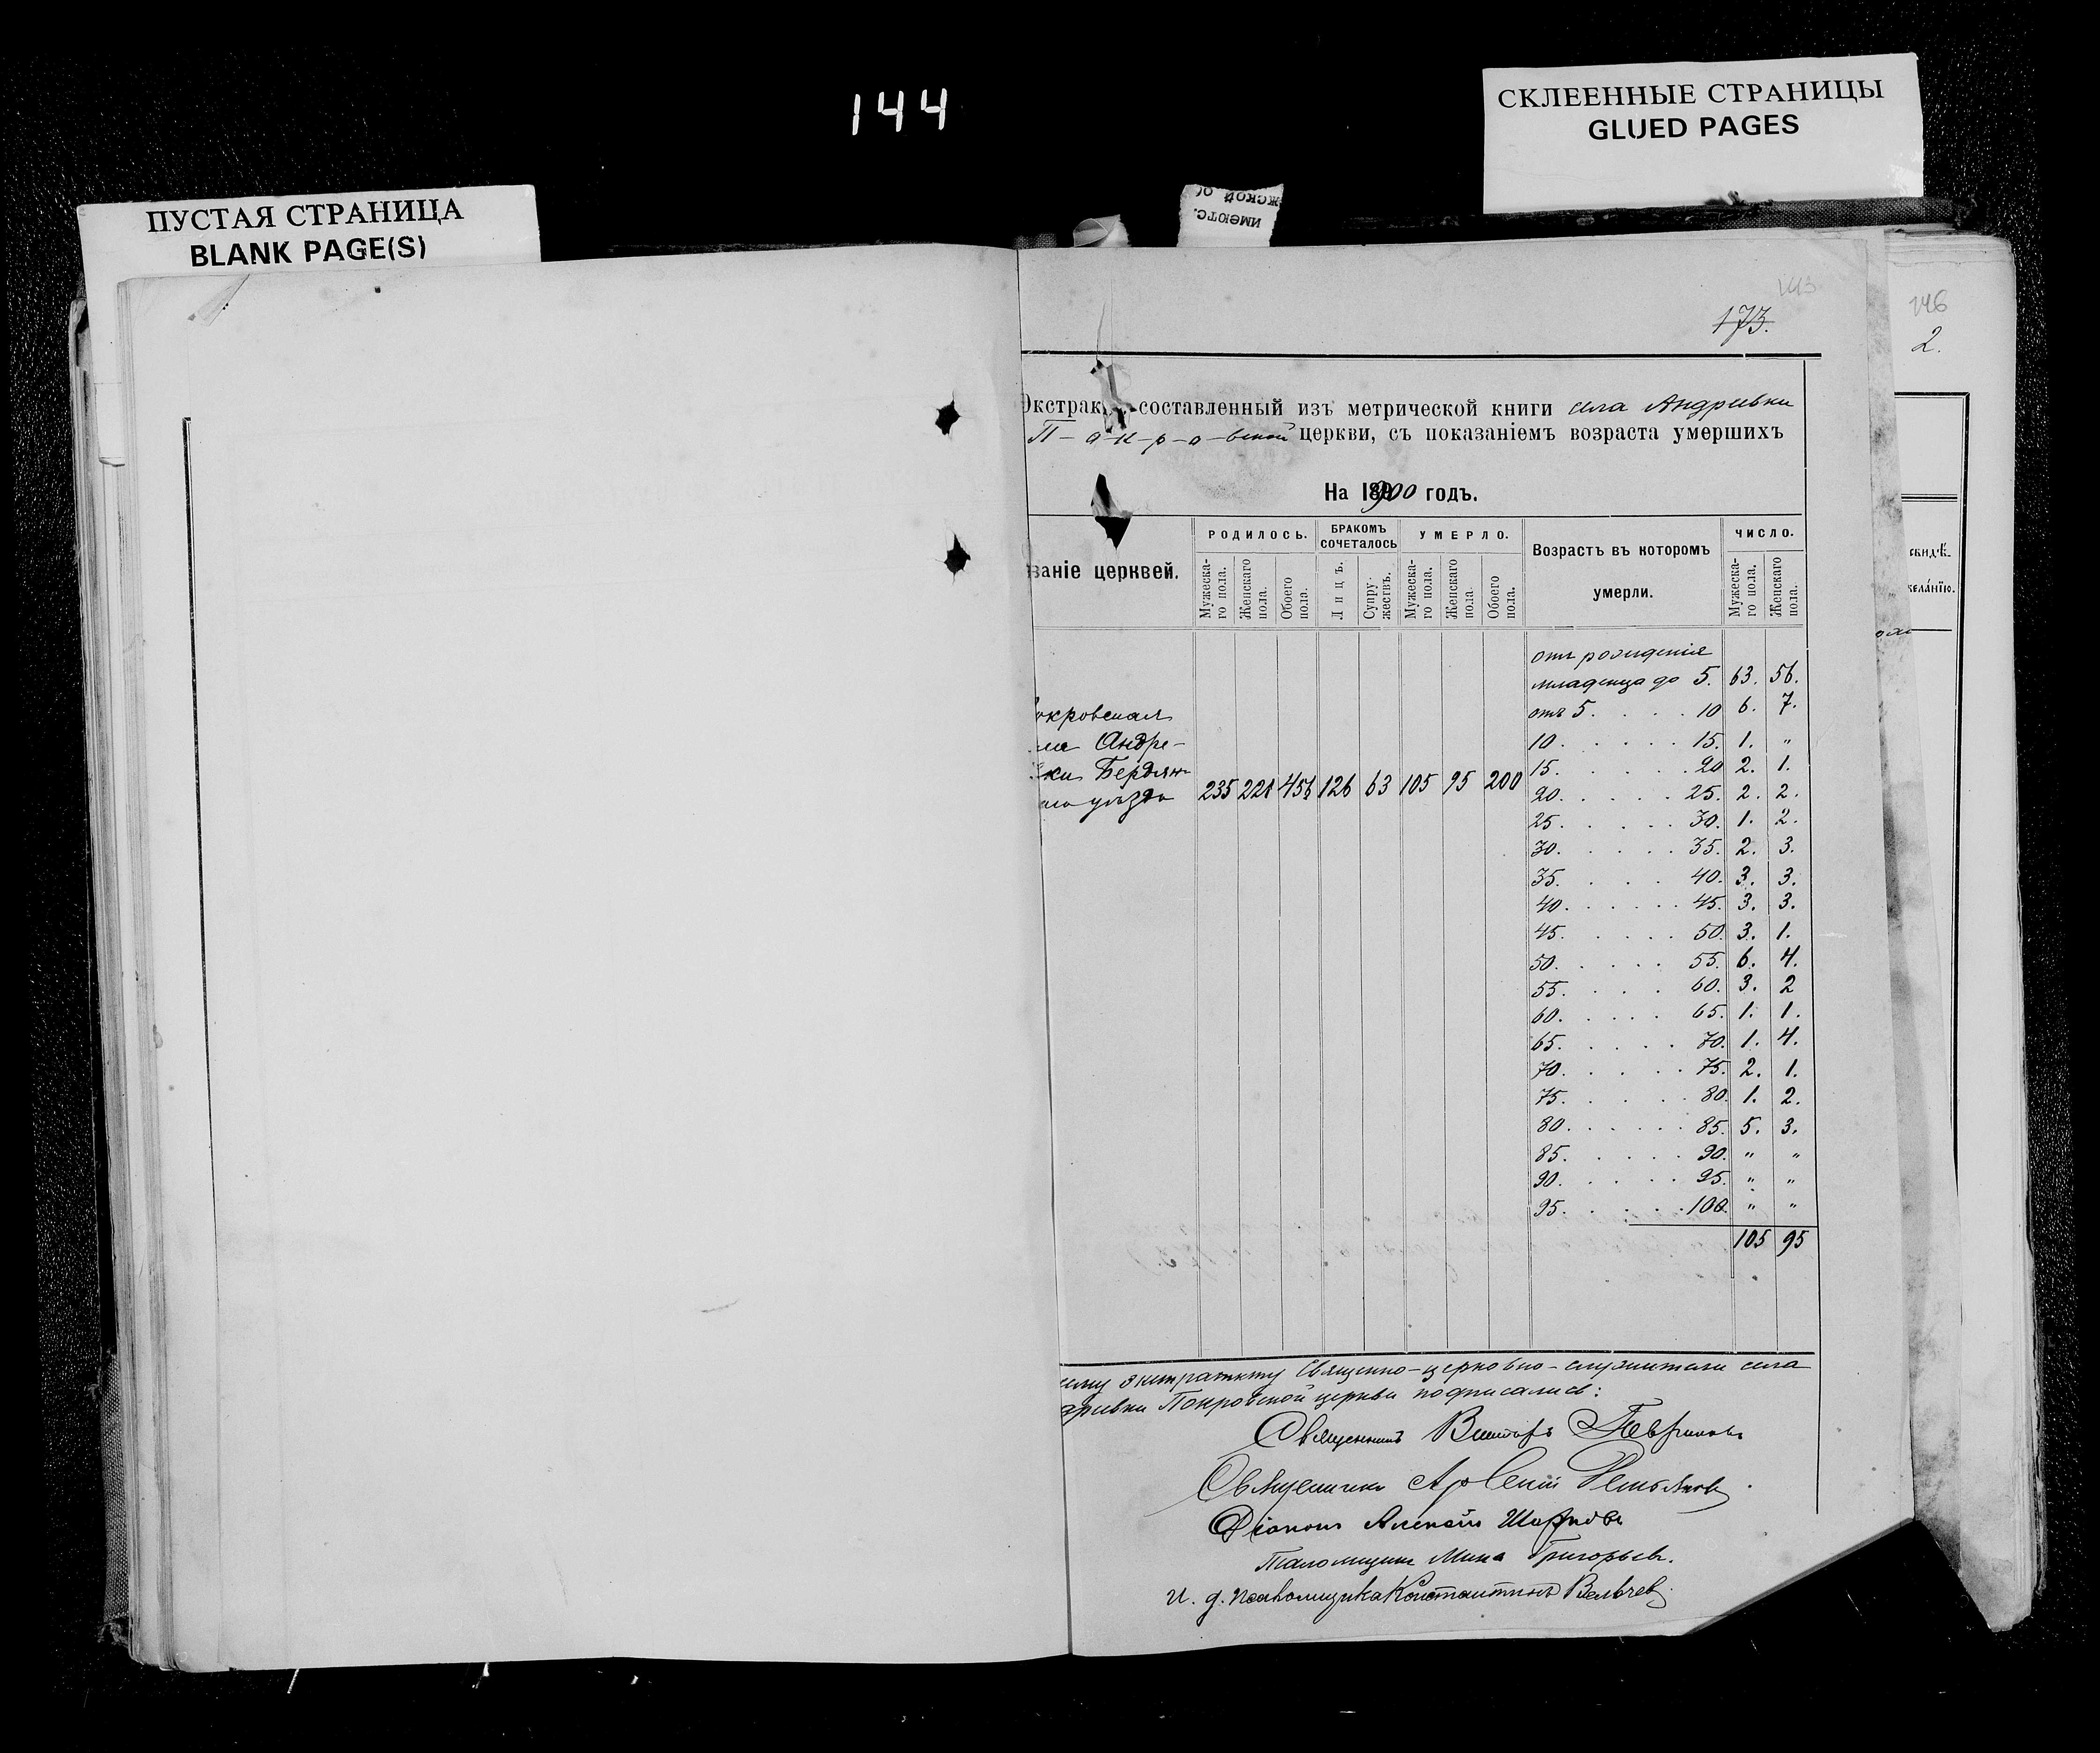 144
СКЛЕЕННЫЕ СТРАНИЦЫ
GLUED PAGES
ПУСТАЯ СТРАНИЦА
BLANK PAGE(S)
имеютс.
143
173.
146
2.
Экстрак составленный изъ метрической книги села Андреевки
П-о-к-р-о-вской церкви, съ показаніемъ возраста умершихъ
На 1900 годъ.
ваніе церквей.
РОДИЛОСЬ.
БРАКОМЪ СОЧЕТАЛОСЬ
УМЕРЛО.
Возрастъ въ которомъ умерли.
ЧИСЛО.
Мужеска-го пола.
Женскаго пола.
Обоего пола.
Лицъ.
Супру-жествъ.
Мужеска-го пола.
Женскаго пола.
Обоего пола.
Мужеска-го пола.
Женскаго пола.
окровская
ла Андре-
ки Бердян-
аго уѣзда
235 221 456 126 63 105 95 200
отъ рожденія
младенца до 5. 63. 56.
отъ 5. . . . . 10 6. 7.
10. . . . . . 15. 1. "
15. . . . . 20 2. 1.
20. . . . . . 25. 2. 2.
25. . . . . . 30. 1. 2.
30. . . . . 35. 2. 3.
35. . . . . 40. 3. 3.
40. . . . . . 45. 3. 3.
45. . . . . 50. 3. 1.
50. . . . . . 55. 6. 4.
55. . . . 60. 3. 2
60. . . . . 65. 1. 1.
65. . . . . 70. 1. 4.
70. . . . . 75. 2. 1.
75. . . . . 80. 1. 2.
80. . . . . . 85. 5. 3.
85. . . . . 90. " "
90. . . . . 95. " "
95. . . . . 100. " "
105 95
сему экстракту Священно-церковно-служители села
дреевки Покровской церкви подписались:
Священникъ Викторъ
Священникъ Арсеній
Діаконъ Алексѣй
Псаломщикъ Мина Григорьев.
И. д. псаломщика Константинъ Вельчев.
свидѣ-
желанію.